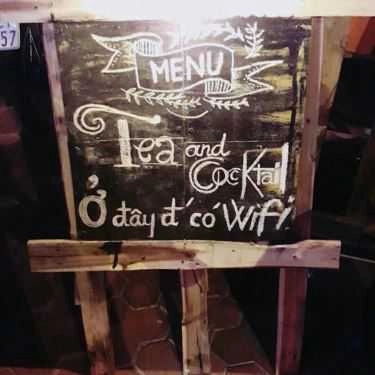 57
MENU
Tea and
Cocktail
Ở đây đ' có Wifi